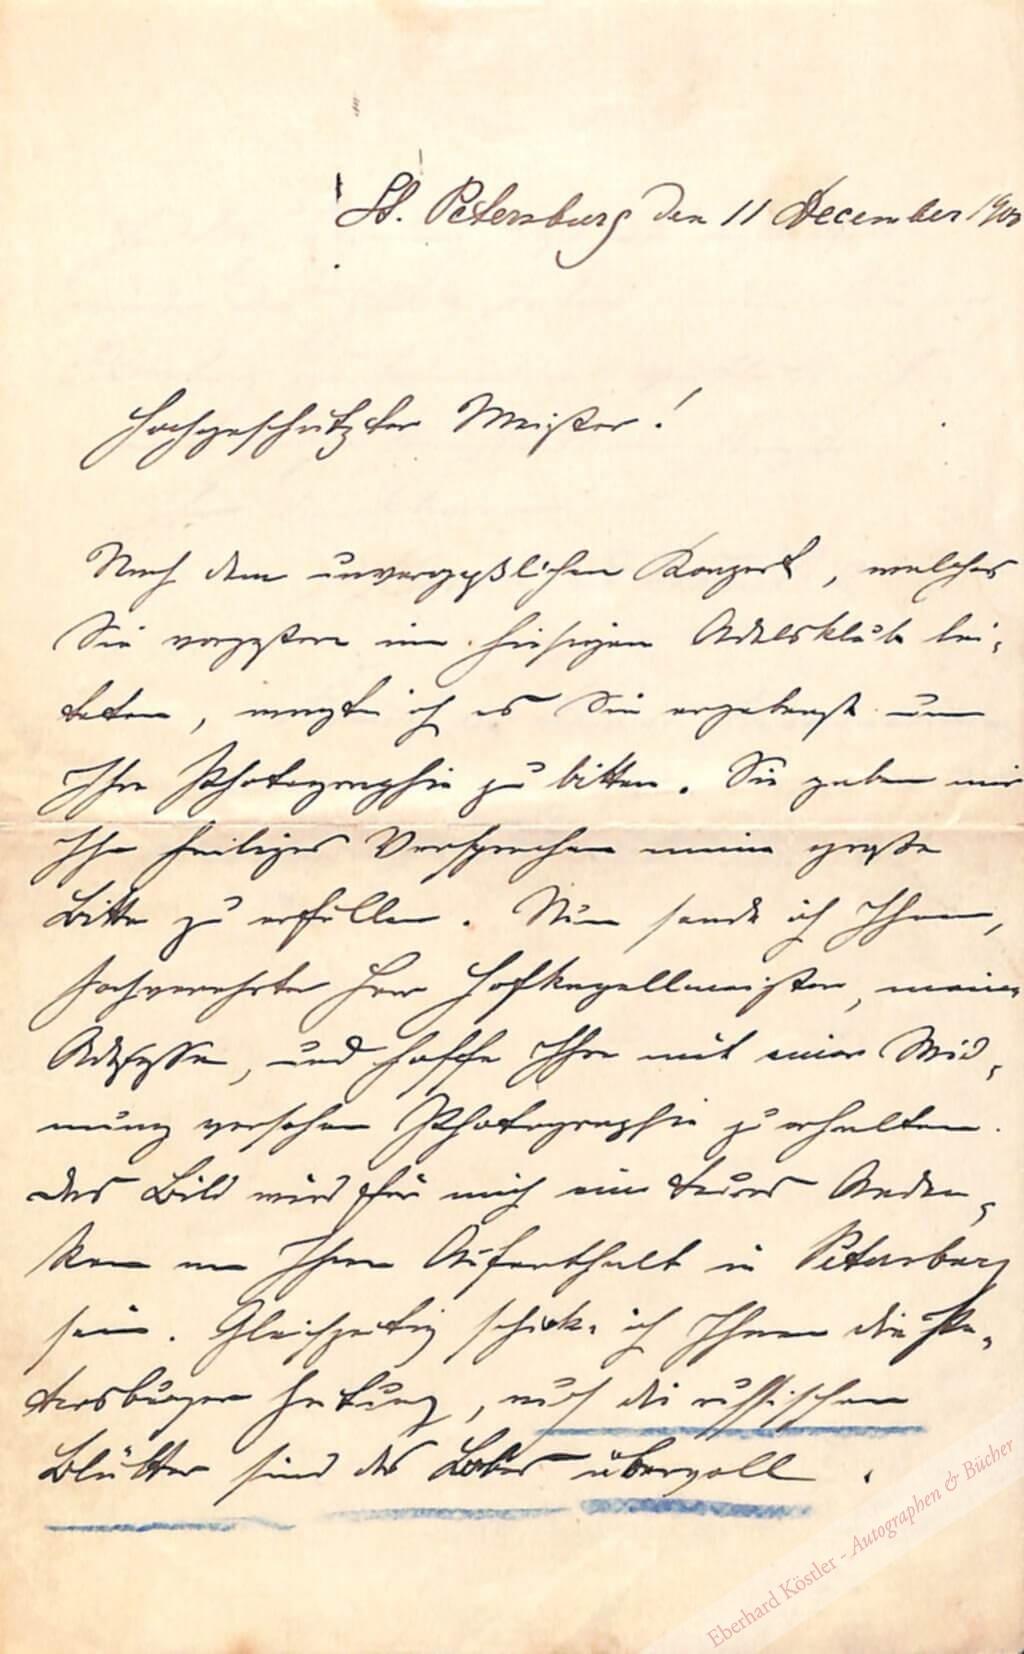 St. Petersburg den 11 December 190
Hochgeschätzter Meister!
Nach dem unvergeßlichen Konzert, welches
Sie vorgestern im hiesigen Adelsklub lei-
teten, wagte ich es Sie ergebenst um
Ihre Photographie zu bitten. Sie gaben mir
Ihr heiliges Versprechen meine große
Bitte zu erfüllen. Nun sende ich Ihnen,
hochverehrter Herr Hofkapellmeister, meine
Adresse, und hoffe Ihre mit einer Wid-
mung versehene Photographie zu erhalten.
Das Bild wird für mich ein teures Anden-
ken an Ihren Aufenthalt in Petersburg
sein. Gleichzeitig schicke ich Ihnen die Pe-
tersburger Zeitung, auch die russischen
Blätter sind des Lobes übervoll.
Eberhard Köstler - Autographen & Bücher